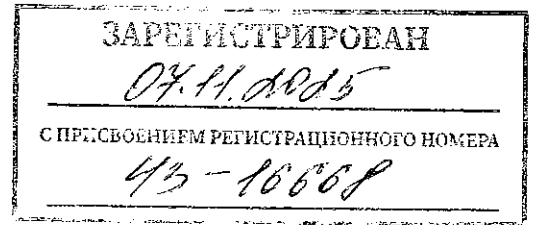 ЗАРЕГИСТРИРОВАН
07.11.2025
С ПРИСВОЕНИЕМ РЕГИСТРАЦИОННОГО НОМЕРА
43-16668